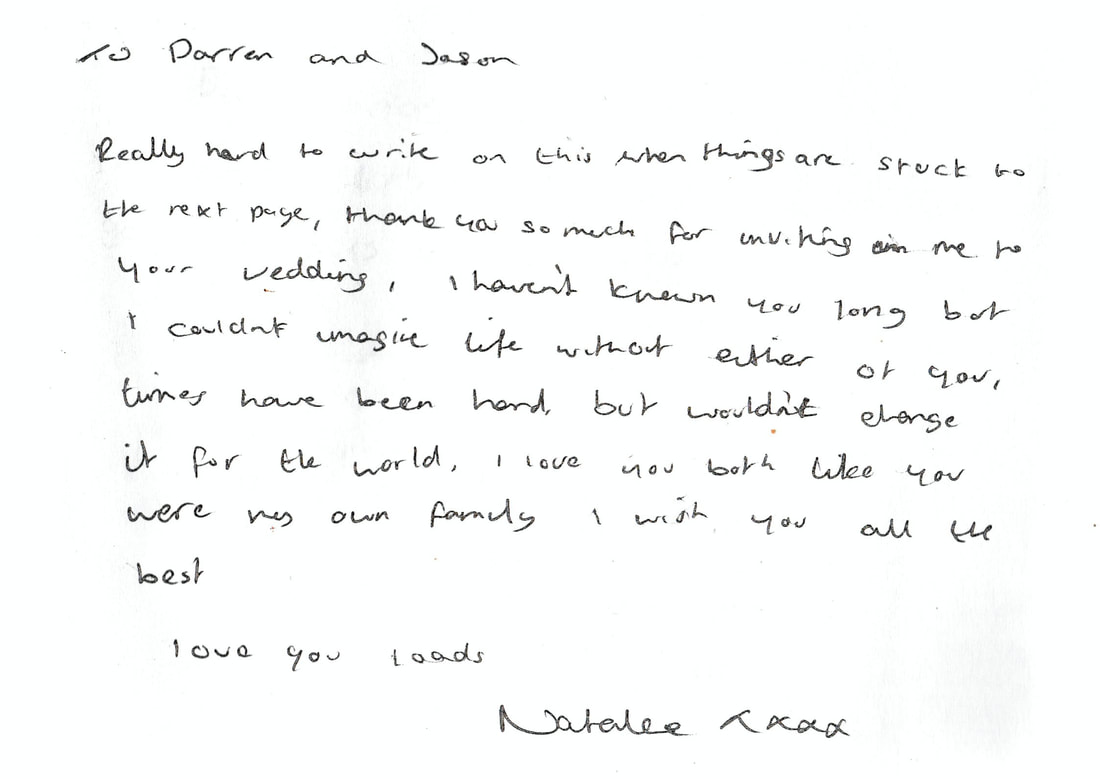 To Darren and Jason
Really hard to write on this when things are stuck to
the next page, thank you so much for inviting me to
your wedding, I haven't known you long but
I couldn't imagine life without either of you,
times have been hard, but wouldn't change
it for the world, I love you both like you
were my own family I wish you all the
best
love you loads
Natalee xxxx